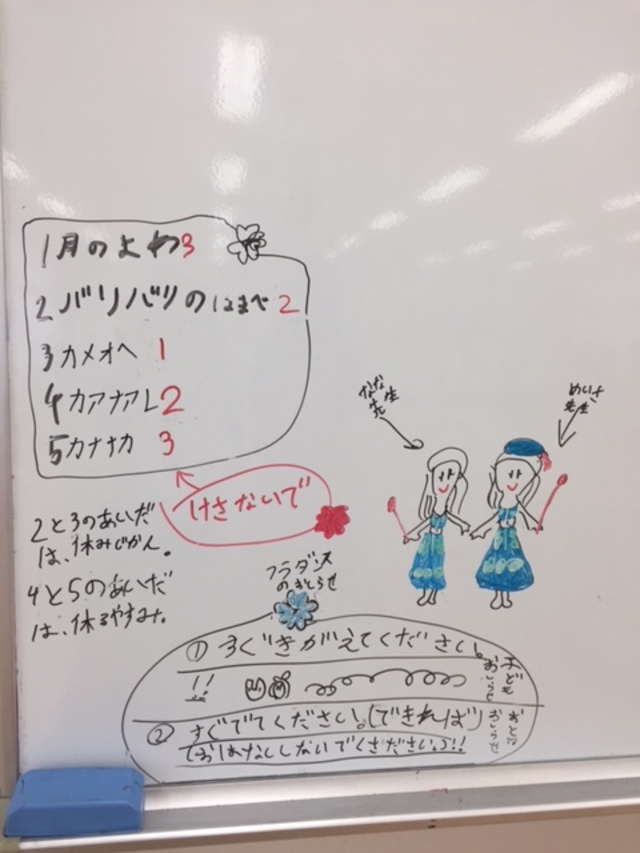 1月のよわ3
2バリバリのはまべ2
3カメオヘ 1
4カアナアレ2
5カナカ 3
けさないで
2と3のあいだ
は、休みじかん。
4と5のあいだ
は、休るやすみ。
なな
先生
めいさ
先生
フラダンス
のおしらせ
① すぐきがえてください。
!!
子ども
② すぐでてください。(できれば)
(おはなししないでくさださい。)!!